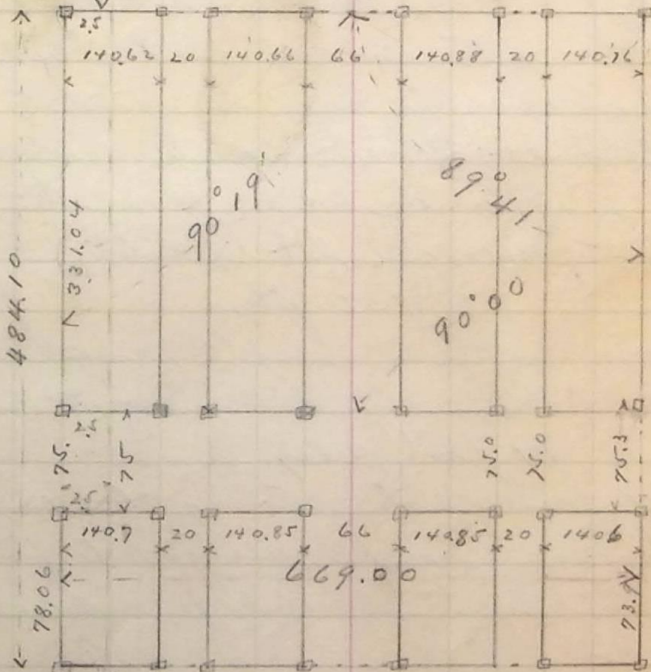 2.5
140.62 20 140.66 66 140.88 20 140.76
90° 19'
89° 41'
90° 00
484.10
331.04
2.5
75.
75
75.0
75.0
75.3
2.5
140.7 20 140.85 66 140.85 20 140.6
669.00
78.06